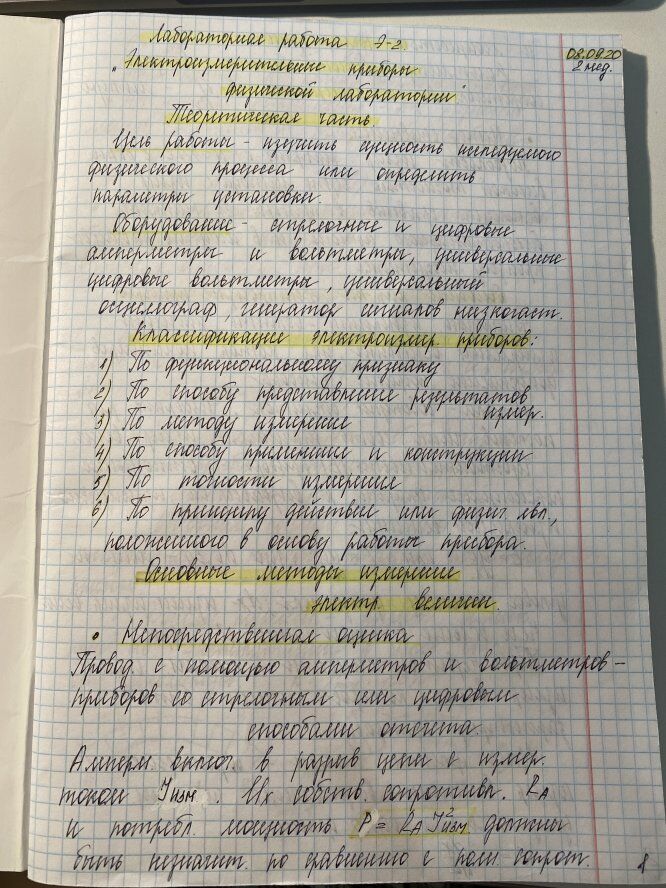 Лабораторная работа Э-2.
08.09.20
2 нед.
„Электроизмерительные приборы
физической лаборатории"
Теоретическая часть.
Цель работы - изучить сущность исследуемого
физического процесса или определить
параметры установки.
Оборудование - стрелочные и цифровые
амперметры и вольтметры, универсальные
цифровые вольтметры, универсальный
осциллограф, генератор сигналов низкочаст.
Классификация электроизмер. приборов:
1) По функциональному признаку
2) По способу представления результатов
измер.
3) По методу измерения
4) По способу применения и конструкции
5) По точности измерения
6) По принципу действия или физич. явл.,
положенного в основу работы прибора.
Основные методы измерения
электр. величин.
• Непосредственная оценка
Провод. с помощью амперметров и вольтметров –
приборов со стрелочным или цифровым
способами отсчета.
Амперм. включ. в разрыв цепи с измер.
током Iизм. Их собств. сопротивл. RA
и потребл. мощность P = RA I²изм должны
быть незначит. по сравнению с полн. сопрот.
1